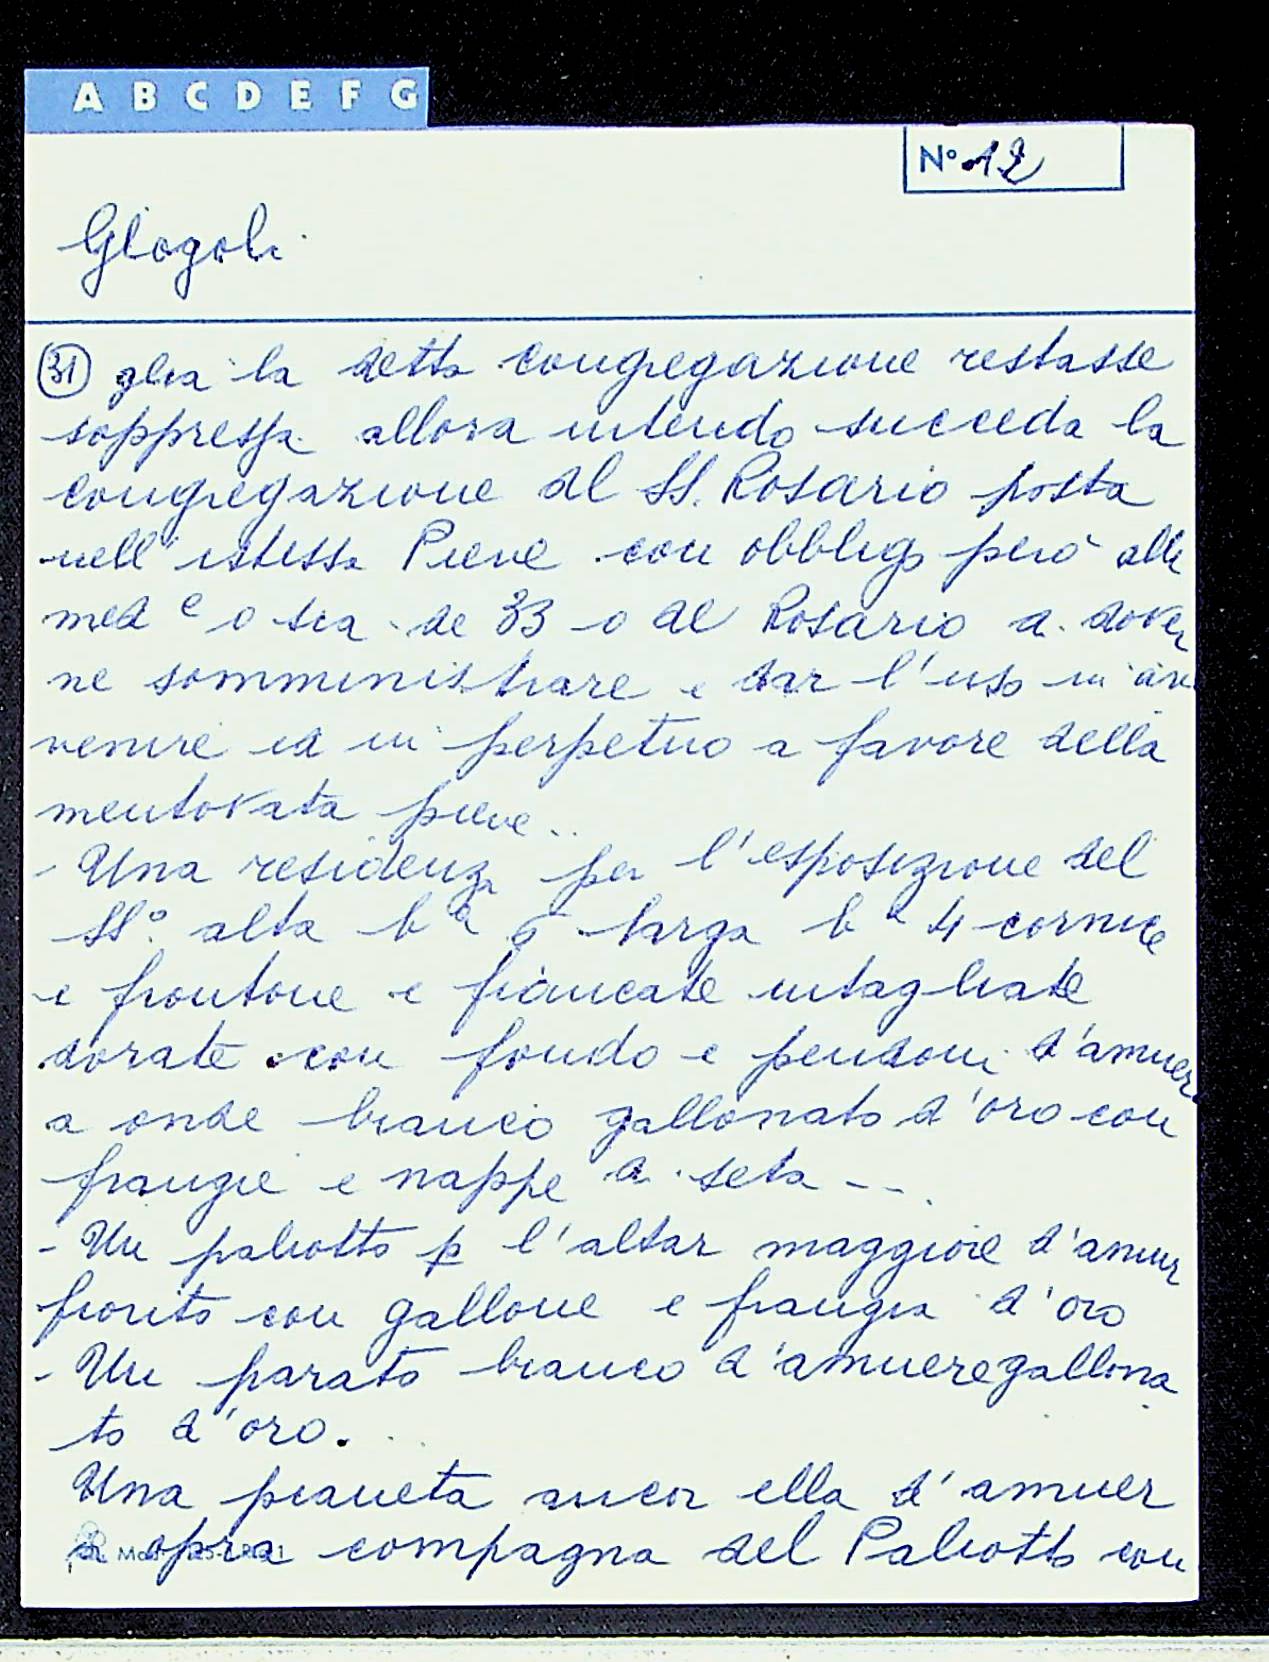 A B C D E F G
N° 12
Giogoli
31 glia la detta congregazione restasse
soppressa allora intendo succeda la
congregazione del SS. Rosario posta
nell'istessa Pieve con obbligo però alle
med e o sia de 33 o del Rosario a dover
ne somministrare e dar l'uso in av
venire ed in perpetuo a favore della
mentovata pieve..
- Una residenza per l'esposizione del
SS° alta ba 6 larga ba 4 cornice
e frontone e fiancate intagliate
dorate con fondo e pendoni d'amuer
a onde bianco gallonato d'oro con
frangie e nappe di seta --.
- Un paliotto p l'altar maggiore d'amuer
fiorito con gallone e frangia d'oro
- Un parato bianco d'amuere gallona
to d'oro.
Una pianeta ancor ella d'amuer
opra compagna del Paliotto con